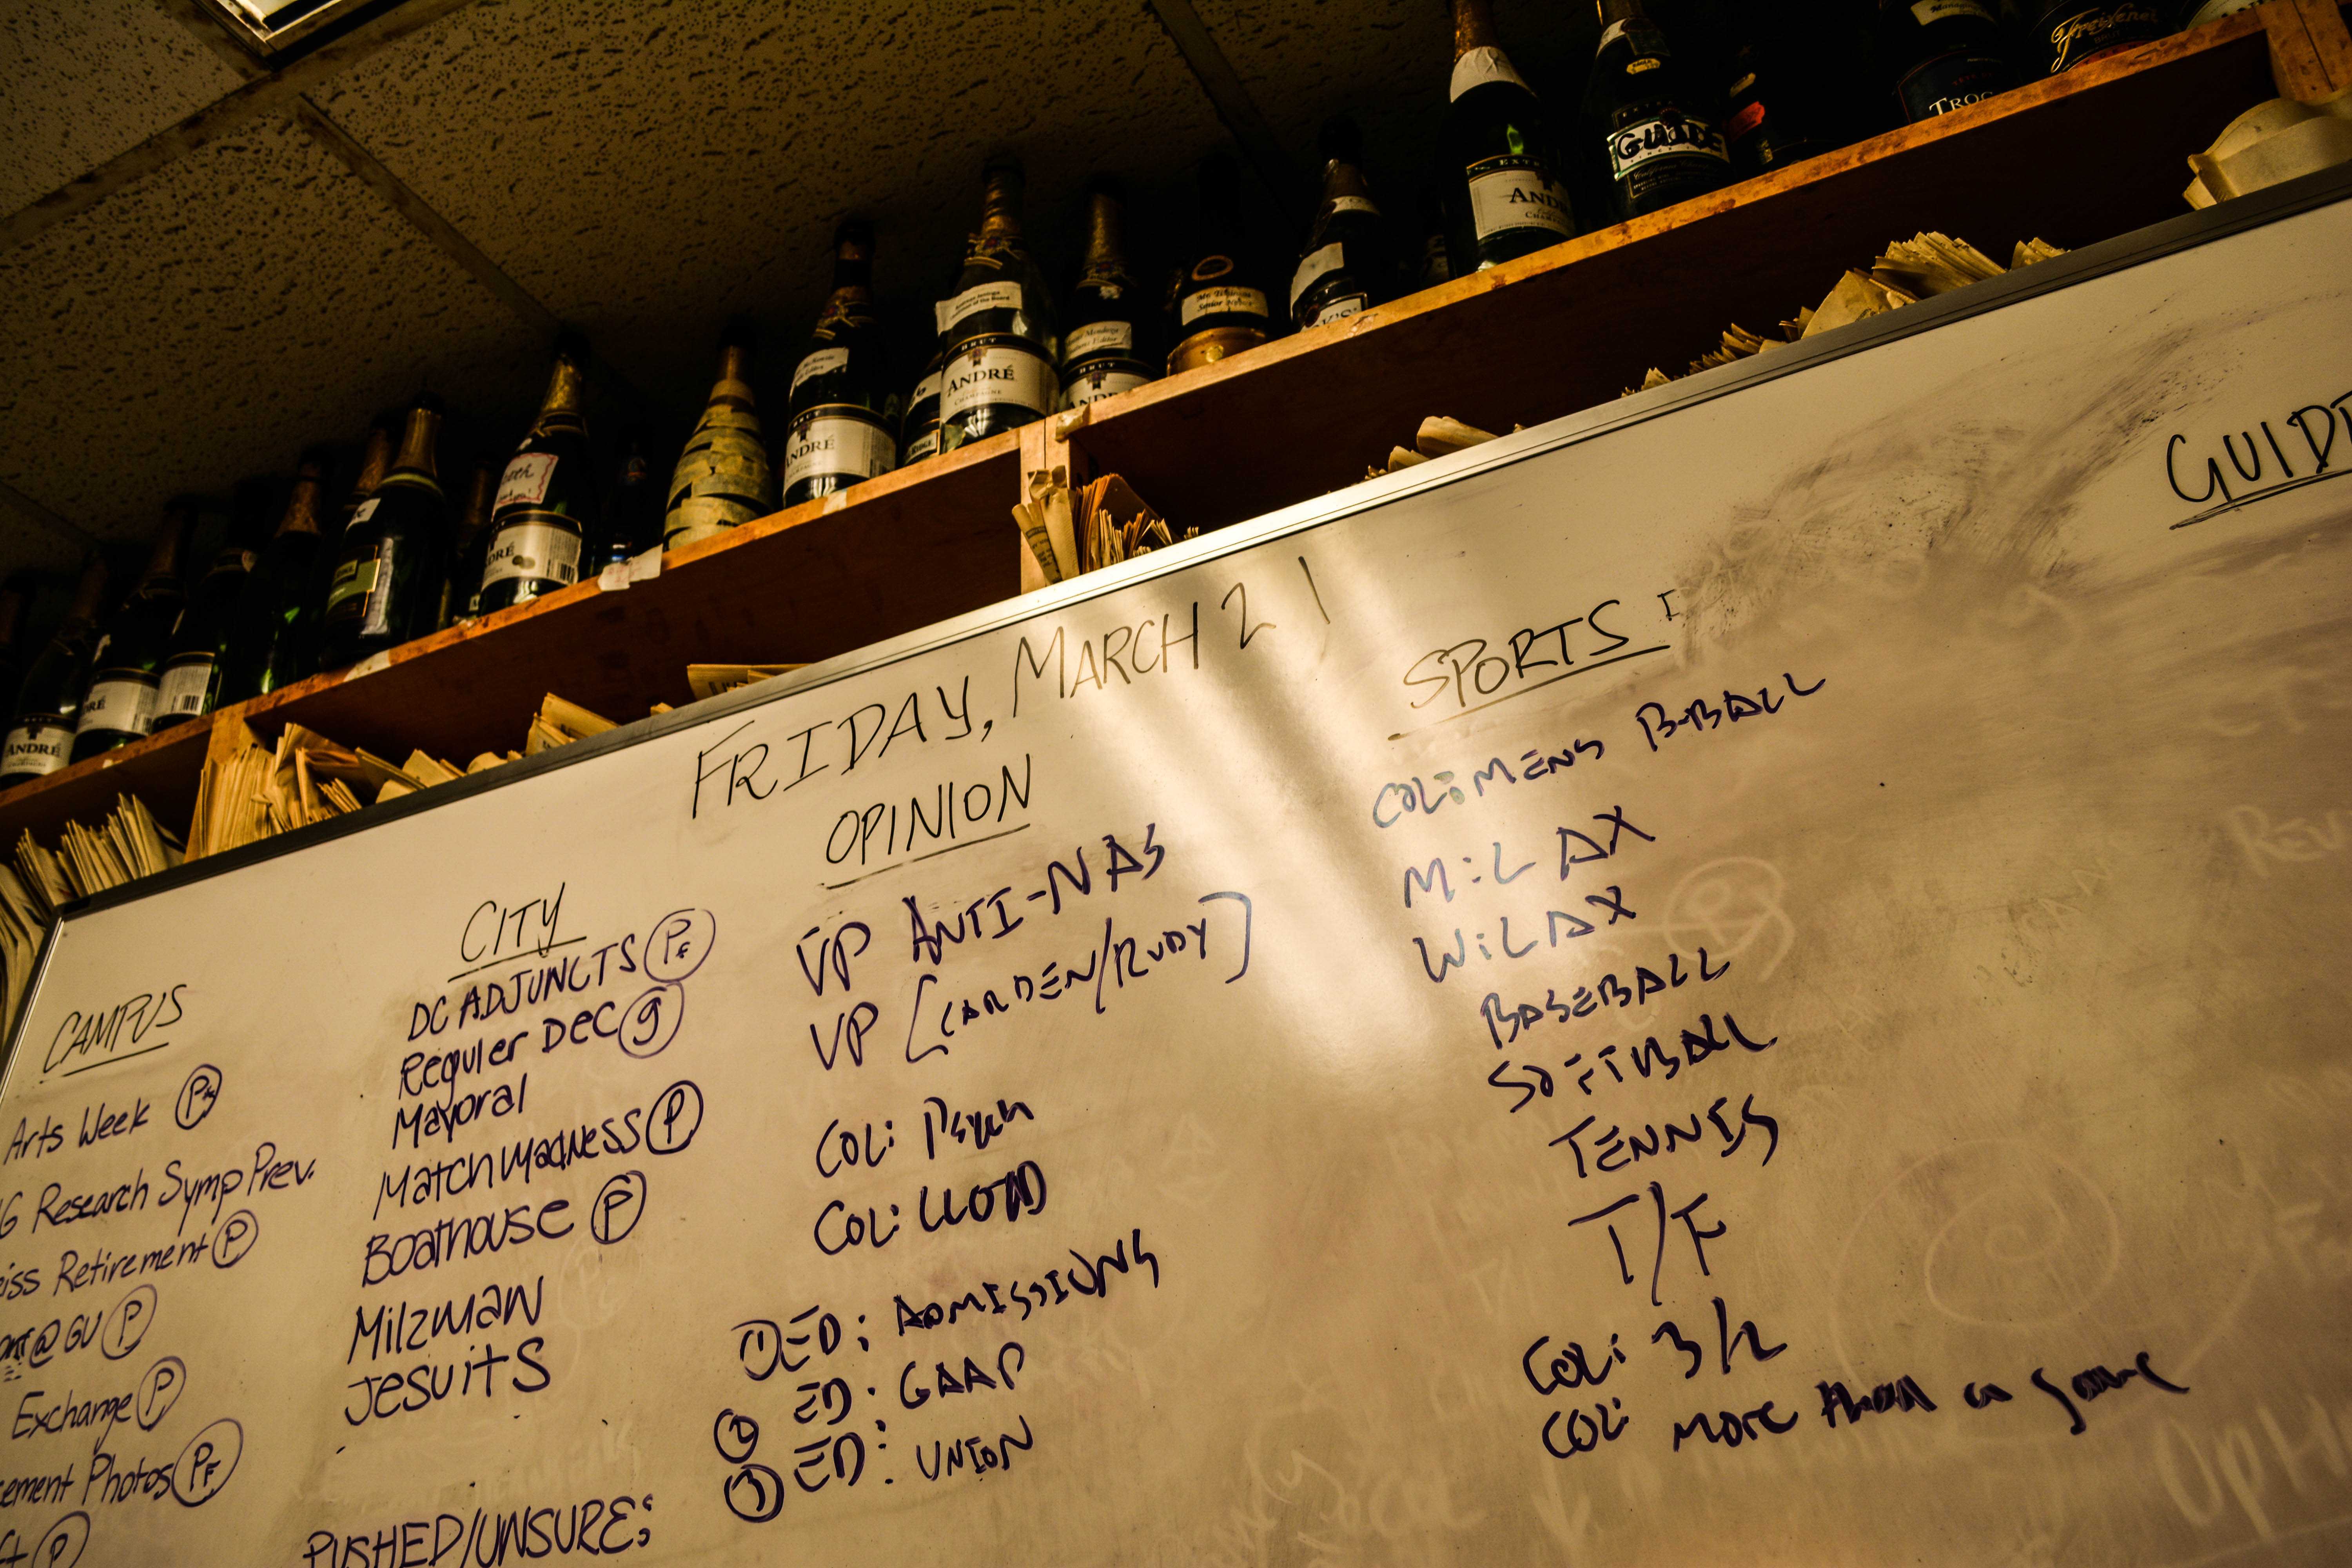 FRIDAY, MARCH 21
CAMPUS
Arts Week
G Research Symp Prev.
iss Retirement P
@GU P
Exchange P
ement Photos PF
P
CITY
DC ADJUNCTS PF
Reguler Dec g
Mayoral
Match Madness P
Boathouse P
Milzman
Jesuits
PUSHED/UNSURE:
OPINION
VP ANTI-NAS
VP [CARDEN/RUDY]
COL: Psych
COL:
1 ED: ADMISSIONS
2 ED: GAAP
3 ED: UNION
SPORTS
COL: MENS B-BALL
M: LAX
W: LAX
BASEBALL
SOFTBALL
TENNIS
T/F
COL:
COL: More than a game
GUIDE
ANDRÉ
ANDRÉ
BRUT
ANDRÉ
CHAMPAGNE
BRUT
EXTRA
ANDRÉ
GUIDE
Freixenet